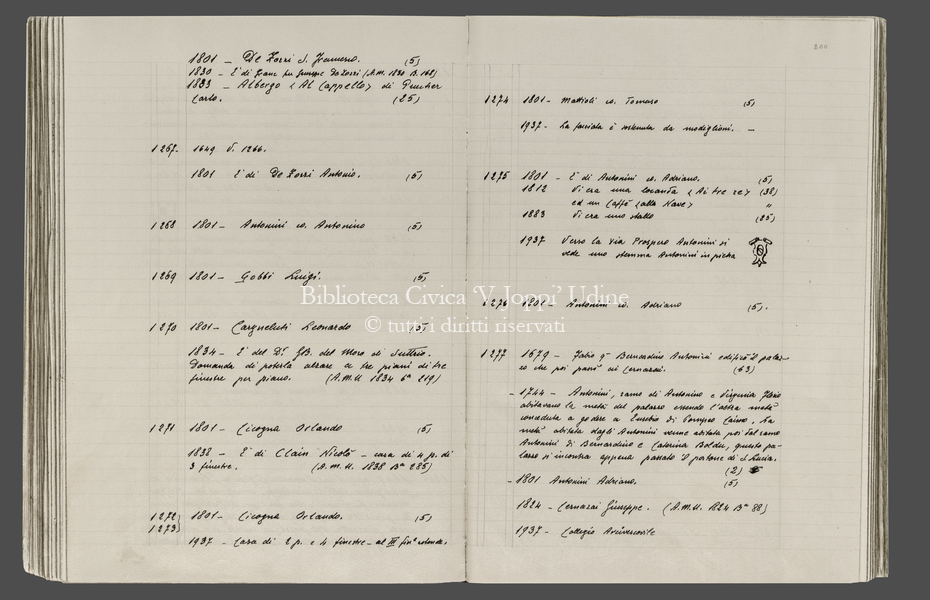 200
1801 - De Zorzi S.
(5)
1830 - È di (A.M. 1830 B. 168)
1833 - Albergo "Al Cappello" di
Carlo. (25)
1267- 1649 V. 1266.
1801 È di De Zorzi Antonio. (5)
1268 1801 - Antonini co. Antonino (5)
1269 1801 - Gobbi Luigi. (5)
1270 1801 - Cargneluti Leonardo (5)
1834 - È del Dr. GB. del Moro di Suttrio.
Domanda di poterla alzare a tre piani di tre
finestre per piano. (A.M.U 1834 219)
1271 1801 - Cicogna Orlando (5)
1838 - È di Clain Nicolò - casa di 4 p. di
3 finestre. (A.M.U. 1838 Ba 285)
1272) 1801 - Cicogna Orlando. (5)
1273)
1937 - Casa di 2 p. e 4 finestre - al III
1274 1801 - Mattioli co. Tomaso (5)
1937 - La facciata è sostenuta da modiglioni. -
1275 1801 - È di Antonini co. Adriano. (5)
1812 Vi era una locanda "Ai tre re" (38)
ed un Caffè "alla Nave" "
1883 Vi era uno stallo (25)
1937 Verso la via Prospero Antonini si
vede uno stemma Antonini in pietra
1276 1801 - Antonini co. Adriano (5).
1277 1679 - Fabio q. Bernardino Antonini edificò il palaz-
zo che poi passò ai Cernazai. (63)
- 1744 - Antonini, ramo di Antonino e Virginia Florio
abitavano la metà del palazzo essendo l'altra metà
conceduta a godere a Eusebio di Pompeo Caimo. La
metà abitata dagli Antonini venne abitata poi dal ramo
Antonini di Bernardino e Caterina Boldù, questo pa-
lazzo si incontra appena passato il portone di S. Lucia.
(2)
- 1801 Antonini Adriano. (5)
1824 - Cernazai Giuseppe. (A.M.U. 1824 Ba 88)
1937 - Collegio Arcivescovile
Biblioteca Civica 'V. Joppi' Udine
© tutti i diritti riservati